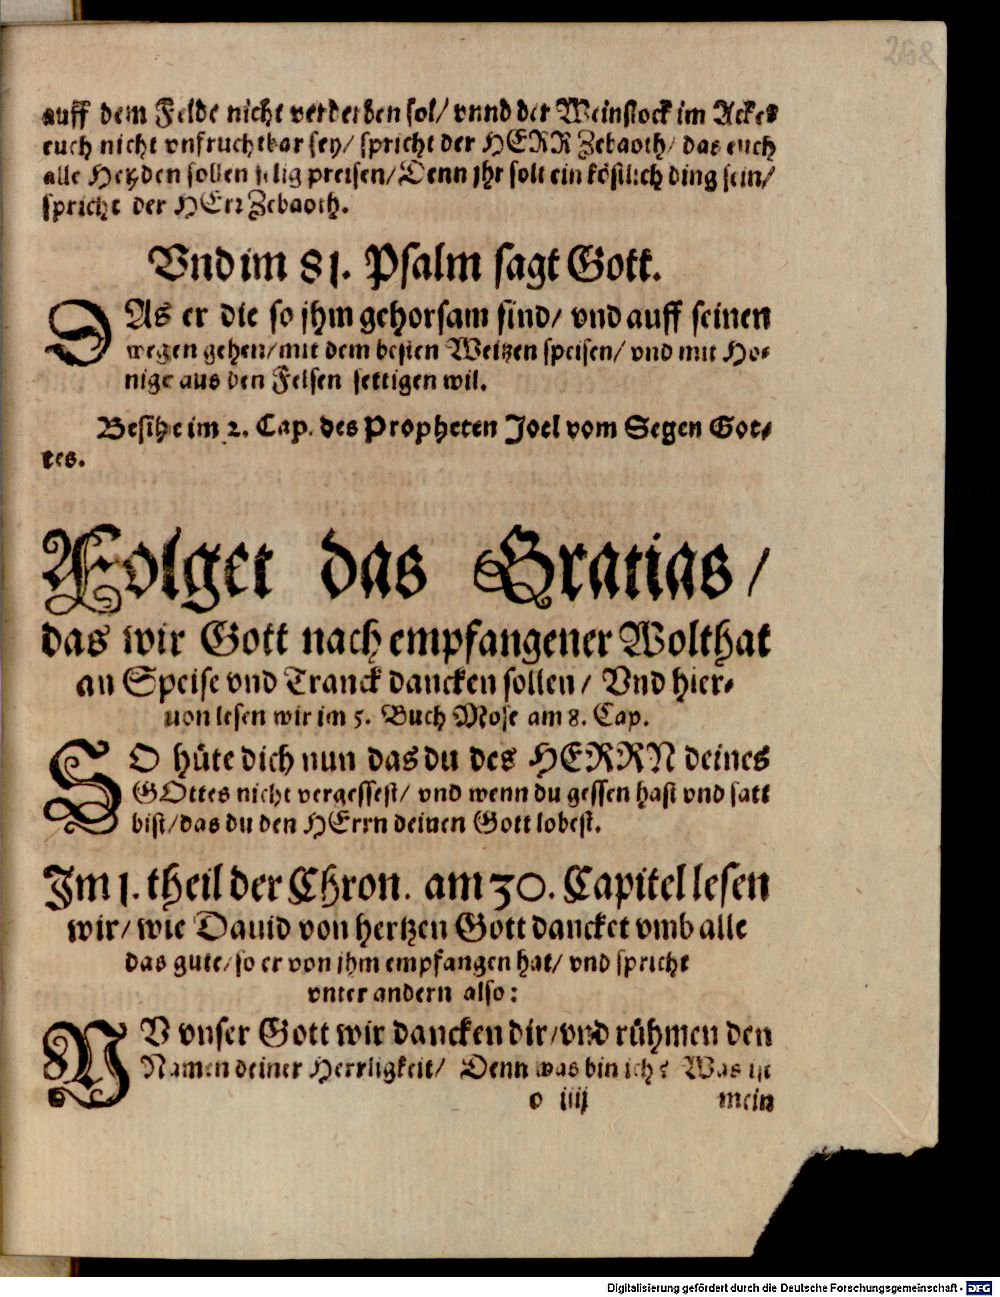 268
auff dem Felde nicht verderben sol/ vnnd der Weinstock im Acker
euch nicht vnfruchtbar sey/ spricht der HERR Zebaoth/ das euch
alle Heyden sollen selig preisen/ Denn jhr solt ein köstlich ding sein/
spricht der HErr Zebaoth.
Vnd im 81. Psalm sagt Gott.
DAs er die so jhm gehorsam sind/ vnd auff seinen
wegen gehen/ mit dem besten Weitzen speisen/ vnd mit Ho-
nige aus den Felsen settigen wil.
Besihe im 2. Cap. des Propheten Joel vom Segen Got-
tes.
Folget das Gratias/
das wir Gott nach empfangener Wolthat
an Speise vnd Tranck dancken sollen/ Vnd hier-
uon lesen wir im 5. Buch Mose am 8. Cap.
SO hüte dich nun das du des HERRN deines
GOttes nicht vergessest/ vnd wenn du gessen hast vnd satt
bist/ das du den HErrn deinen Gott lobest.
Im 1. theil der Chron. am 30. Capitel lesen
wir/ wie Dauid von hertzen Gott dancket vmb alle
das gute/ so er von jhm empfangen hat/ vnd spricht
vnter andern also:
NV vnser Gott wir dancken dir/ vnd rühmen den
Namen deiner Herrligkeit/ Denn was bin ich? Was ist
o iiij mein
Digitalisierung gefördert durch die Deutsche Forschungsgemeinschaft - DFG